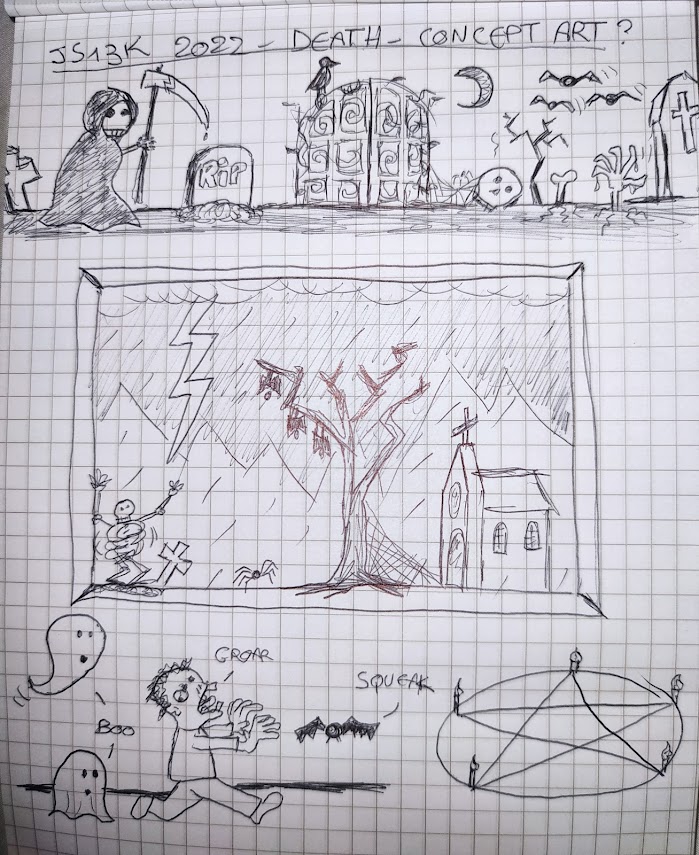 JS13K 2022 - DEATH - CONCEPT ART?
RIP
GROAR
SQUEAK
BOO